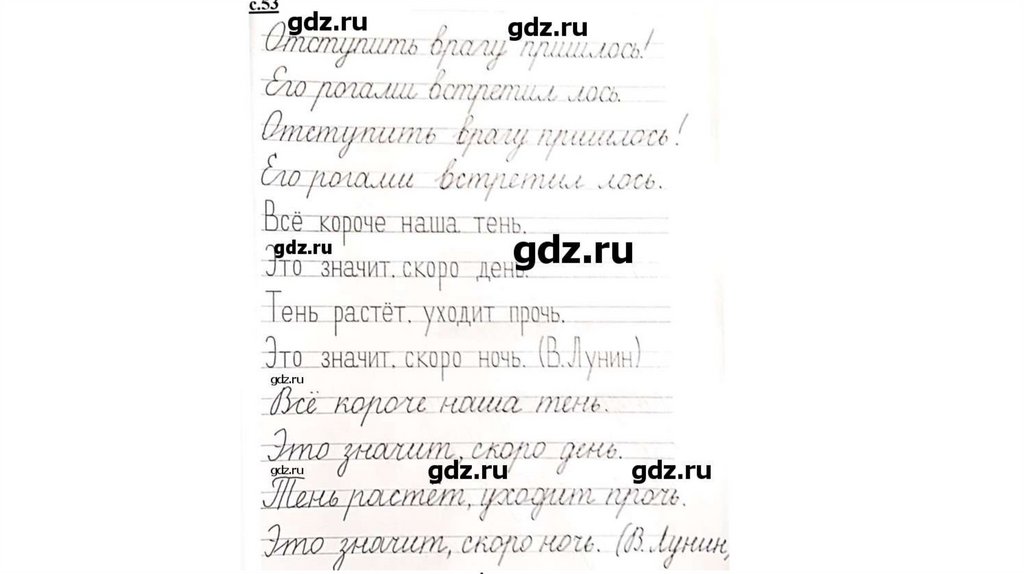 с.53
gdz.ru gdz.ru
Отступить врагу пришлось!
Его рогами встретил лось.
Отступить врагу пришлось!
Его рогами встретил лось.
Всё короче наша тень.
gdz.ru gdz.ru
Это значит, скоро день.
Тень растёт, уходит прочь.
Это значит, скоро ночь. (В.Лунин)
gdz.ru
Всё короче наша тень.
Это значит, скоро день.
gdz.ru gdz.ru gdz.ru
Тень растёт, уходит прочь.
Это значит, скоро ночь. (В.Лунин)